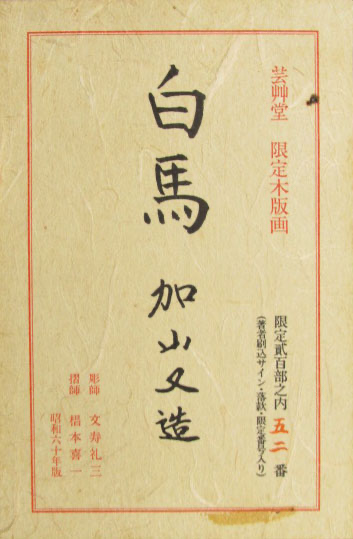 芸艸堂 限定木版画
限定貮百部之内 五二 番
(著者刷込サイン・落款・限定番号入り)
白馬 加山又造
彫師 文寿礼三
摺師 椙本喜一
昭和六十年版